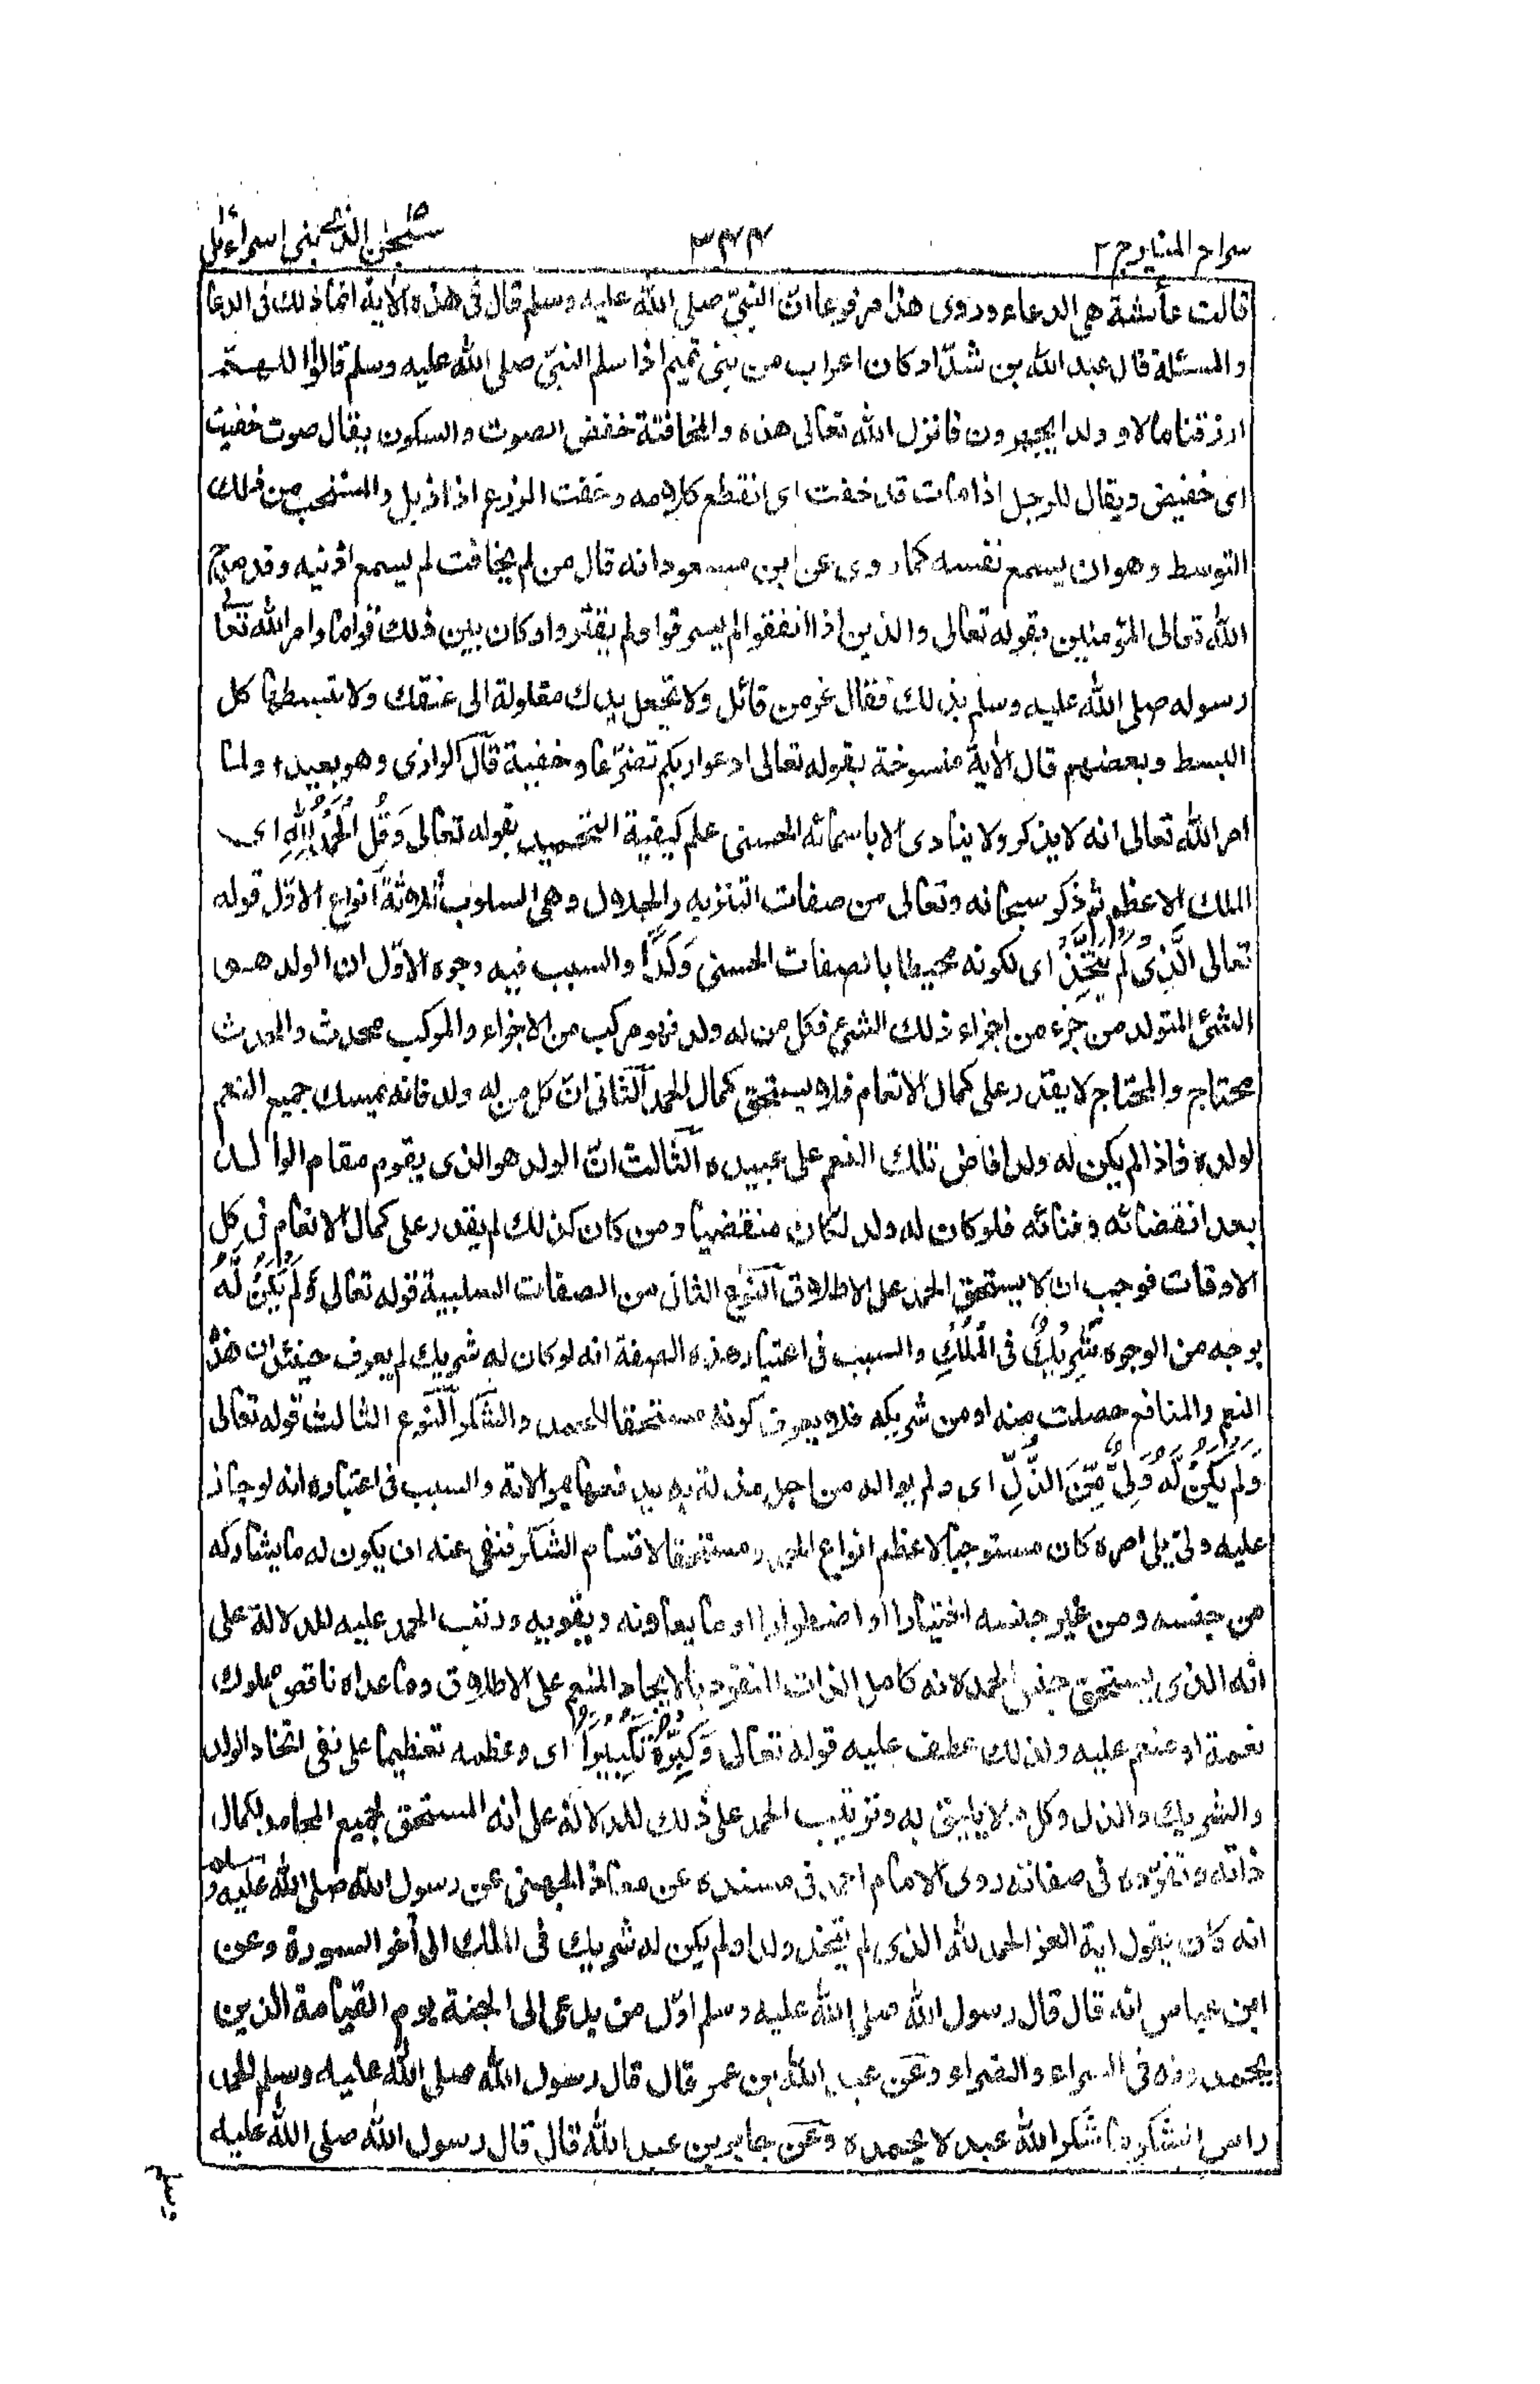 سراج المنير ج ٢
٣٤٤
سبحن الذي ١٥ بنى اسرائيل ١٧
قالت عائشة هى الدعاء وروى هذا مرفوعا انّ النبىّ صلى الله عليه وسلم قال فى هذه الاية انما ذلك فى الدعا
والمسئلة قال عبد الله بن شدّاد كان اعراب من بنى تميم اذا سلم النبىّ صلى الله عليه وسلم قالوا اللهمّ
ارزقنا مالا و ولدا يجهرون فانزل الله تعالى هذه والمخافتة خفض الصوت والسكون يقال صوت خفيت
اى خفيض ويقال للرجل اذا مات قد خفت اى انقطع كلامه وخفت الزرع اذا ذبل والمستحب من ذلك
التوسط وهو ان يسمع نفسه كما روى عن ابن مسعود انه قال من لم يخافت لم يسمع اذنيه وقد مدح
الله تعالى المؤمنين بقوله تعالى والذين اذا انفقوا لم يسرفوا ولم يقتروا وكان بين ذلك قواما وامر الله تعا
رسوله صلى الله عليه وسلم بذلك فقال عز من قائل ولا تجعل يدك مغلولة الى عنقك ولا تبسطها كل
البسط وبعضهم قال الاية منسوخة بقوله تعالى ادعوا ربكم تضرّعا وخفية قال الرازى وهو بعيد ولما
امر الله تعالى انه لا يذكر ولا ينادى الا باسمائه الحسنى علم كيفية التحميد بقوله تعالى وَقُلِ الْحَمْدُ لِلّٰهِ اى
الملك الاعظم ثم ذكر سبحانه وتعالى من صفات التنزيه والجلال وهى السلوب ثلاثة انواع الاوّل قوله
تعالى الَّذِى لَمْ يَتَّخِذْ اى لكونه محيطا بالصفات الحسنى وَلَدًا والسبب فيه وجوه الاوّل ان الولد هو
الشئ المتولد من جزء من اجزاء ذلك الشئ فكل من له ولد فهو مركب من الاجزاء والمركب محدث والمحدث
محتاج والمحتاج لا يقدر على كمال الانعام فلا يستحق كمال الحمد الثانى انّ كل من له ولد فانه يمسك جميع النعم
لولده فاذا لم يكن له ولد افاض تلك النعم على عبيده الثالث انّ الولد هو الذى يقوم مقام الوالد
بعد انقضائه وفنائه فلو كان له ولد لكان منقضيا ومن كان كذلك لم يقدر على كمال الانعام فى كل
الاوقات فوجب ان لا يستحق الحمد على الاطلاق النوع الثانى من الصفات السلبية قوله تعالى وَلَمْ يَكُنْ لَّهُ
بوجه من الوجوه شَرِيْكٌ فِى الْمُلْكِ والسبب فى اعتبار هذه الصفة انه لو كان له شريك لم يعرف حينئذ ان هذه
النعم والمنافع حصلت منه او من شريكه فلا يعرف كونه مستحقا للحمد والشكر النوع الثالث قوله تعالى
وَلَمْ يَكُنْ لَّهُ وَلِىٌّ مِّنَ الذُّلِّ اى ولم يوالد من اجل مذلة به يدفعها بموالاته والسبب فى اعتباره انه لو جاز
عليه ولىّ يلى امره كان مستوجبا لاعظم انواع الحمد ومستحقا لاقسام الشكر فنفى عنه ان يكون له ما يشاركه
من جنسه ومن غير جنسه اختيارا او اضطرارا او ما يعاونه ويقويه ورتب الحمد عليه للدلالة على
انه الذى يستحق جنس الحمد لانه كامل الذات المتفرد بالايجاد المنعم على الاطلاق وما عداه ناقص مملوك
نعمة او منعم عليه ولذلك عطف عليه قوله تعالى وَكَبِّرْهُ تَكْبِيْرًا اى وعظمه تعظيما على نفى اتخاذ الولد
والشريك والذل وكل ما لا يليق به وترتيب الحمد على ذلك للدلالة على انه المستحق لجميع المحامد لكمال
ذاته وتفرّده فى صفاته روى الامام احمد فى مسنده عن معاذ الجهنى عن رسول الله صلى الله عليه وسلم
انه كان يقول اية العز الحمد لله الذى لم يتخذ ولدا ولم يكن له شريك فى الملك الى اخر السورة وعن
ابن عباس انه قال قال رسول الله صلى الله عليه وسلم اوّل من يدعى الى الجنة يوم القيامة الذين
يحمدونه فى السراء والضراء وعن عبد الله بن عمر قال قال رسول الله صلى الله عليه وسلم الحمد
راس الشكر ما شكر الله عبد لا يحمده وعن جابر بن عبد الله قال قال رسول الله صلى الله عليه
وسلم